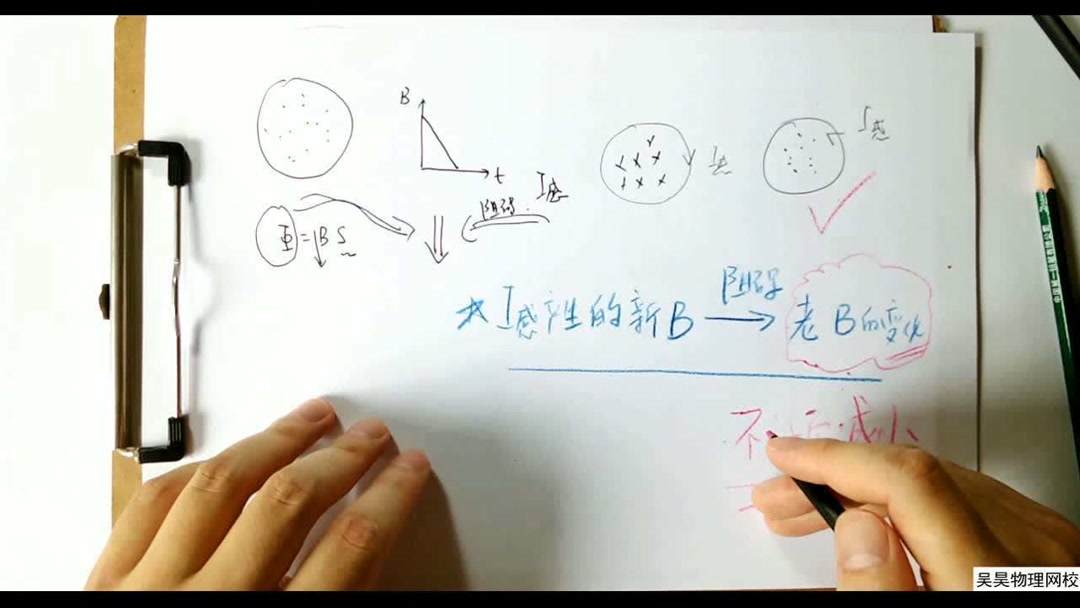 B
t
I感
阻碍
Φ=BS
I感
I感
*I感产生的新B 阻碍 老B的变化
不 减小
吴昊物理网校